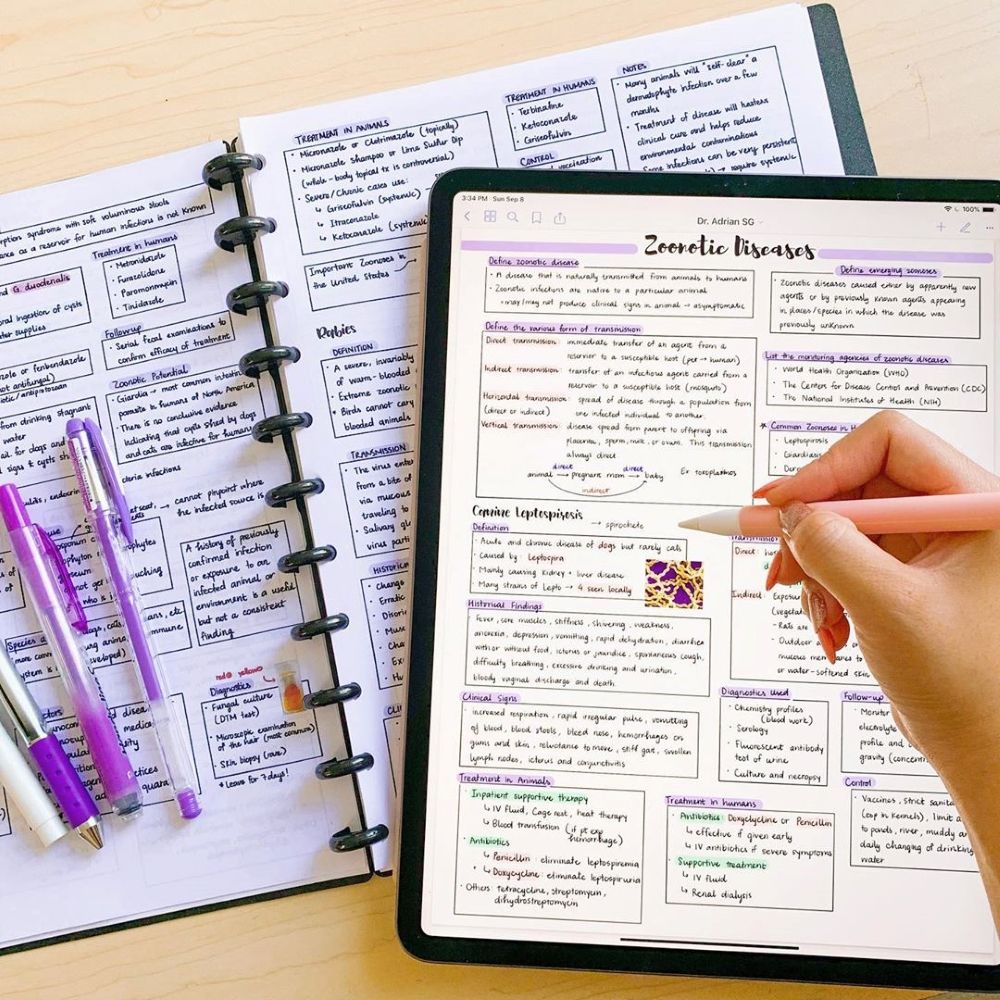 TREATMENT IN ANIMALS
• Miconazole or Clotrimazole (topically)
• Miconazole shampoo or Lime Sulfur Dip
(whole-body topical tx is controversial)
• Severe/Chronic cases use:
↳ Griseofulvin (systemic)
↳ Itraconazole
↳ Ketoconazole (systemic
TREATMENT IN HUMANS
• Terbinafine
• Ketoconazole
• Griseofulvin
CONTROL
vaccination
NOTES
• Many animals will "self-clear" a
dermatophyte infection over a few
months
• Treatment of disease will hasten
clinical cure and helps reduce
environmental contaminations
Some infections can be very persistent
require systemic
Important Zoonoses in
the United States
Rabies
DEFINITION
• A severe, invariably
of warm-blooded
• Extreme zoonotic
* Birds cannot carry
blooded animals
TRANSMISSION
• The virus enter
from a bite of
via mucous
traveling to
• Salivary gl
virus parti
HISTORIC
• Change
• Erratic
• Disori
CLI
ption syndrome with soft voluminous stools
ance as a reservoir for human infections is not known
Treatment in humans
• Metronidazole
• Furazolidone
• Paromomycin
• Tinidazole
nd G. duodenalis
oral ingestion of cysts
er supplies
Followup
• Serial fecal examinations to
confirm efficacy of treatment
zole or fenbendazole
not antifungal)
biotic/antiprotozoan
Zoonotic Potential
• Giardia → most common intestin
parasite in humans of North America
• There is no conclusive evidence
indicating that cysts shed by dogs
and cats are infective for humans
from drinking stagnant
water
ail for dogs and
signs & cysts sh
cteria infections
→ cannot pinpoint where
the infected source is
A history of previously
confirmed infection
or exposure to an
infected animal or
environment is a useful
but not a consistent
finding
Diagnostics
• Fungal culture
(DTM test)
• Microscopic examination
of the hair (most common)
• Skin biopsy (rare)
* Leave for 7 days!
red yellow
3:34 PM Sun Sep 8
100%
Dr. Adrian SG
Zoonotic Diseases
Define zoonotic disease
• A disease that is naturally transmitted from animals to humans
• Zoonotic infections are native to a particular animal
• may/may not produce clinical signs in animal → asymptomatic
Define emerging zoonoses
• Zoonotic diseases caused either by apparently new
agents or by previously known agents appearing
in places/species in which the disease was
previously unknown
Define the various form of transmission
Direct transmission: immediate transfer of an agent from a
reservoir to a susceptible host (pet → human)
Indirect transmission: transfer of an infectious agent carried from a
reservoir to a susceptible host (mosquito)
Horizontal transmission: spread of disease through a population from
(direct or indirect) one infected individual to another.
Vertical transmission: disease spread from parent to offspring via
placenta, sperm, milk, or ovum. This transmission
always direct.
direct direct
animal → pregnant mom → baby Ex: toxoplasmos
indirect
List the monitoring agencies of zoonotic diseases
• World Health Organization (WHO)
• The Centers for Disease Control and Prevention (CDC)
• The National Institutes of Health (NIH)
* Common Zoonoses in H
• Leptospirosis
• Giardiasi
• Der
Canine Leptospirosis → spirochete
Definition
• Acute and chronic disease of dogs but rarely cats
• Caused by: Leptospira
• Mainly causing kidney + liver disease
• Many strains of Lepto → 4 seen locally
Transmission
Direct:
Indirect: Exposure
(vegetat
- Rats are
- Outdoor
mucous membranes
or water-softened skin
Historical Findings
fever, sore muscles, stiffness, shivering, weakness,
anorexia, depression, vomiting, rapid dehydration, diarrhea
with or without food, icterus or jaundice, spontaneous cough,
difficulty breathing, excessive drinking and urination,
bloody vaginal discharge and death.
Clinical Signs
• increased respiration, rapid irregular pulse, vomiting
of blood, bloody stools, bleed nose, hemorrhages on
gums and skin, reluctance to move, stiff gait, swollen
lymph nodes, icterus and conjunctivitis
Diagnostics Used
• Chemistry profiles
(blood work)
• Serology
• Fluorescent antibody
test of urine
• Culture and necropsy
Follow-up
• Monitor
electrolyte
profile and
gravity (concentr
Treatment in Animals
• Inpatient supportive therapy
↳ IV fluid, Cage rest, heat therapy
↳ Blood transfusion (if pt exp hemorrhage)
• Antibiotics
↳ Penicillin: eliminate leptospiremia
↳ Doxycycline: eliminate leptospiruria
• Others: tetracycline, streptomycin,
dihydrostreptomycin
Treatment in humans
• Antibiotics: Doxycycline or Penicillin
↳ effective if given early
↳ IV antibiotics if severe symptoms
• Supportive treatment
↳ IV fluid
↳ Renal dialysis
Control
• Vaccines, strict sanita
(esp in kennels), limit a
to ponds, river, muddy ar
daily changing of drinking
water